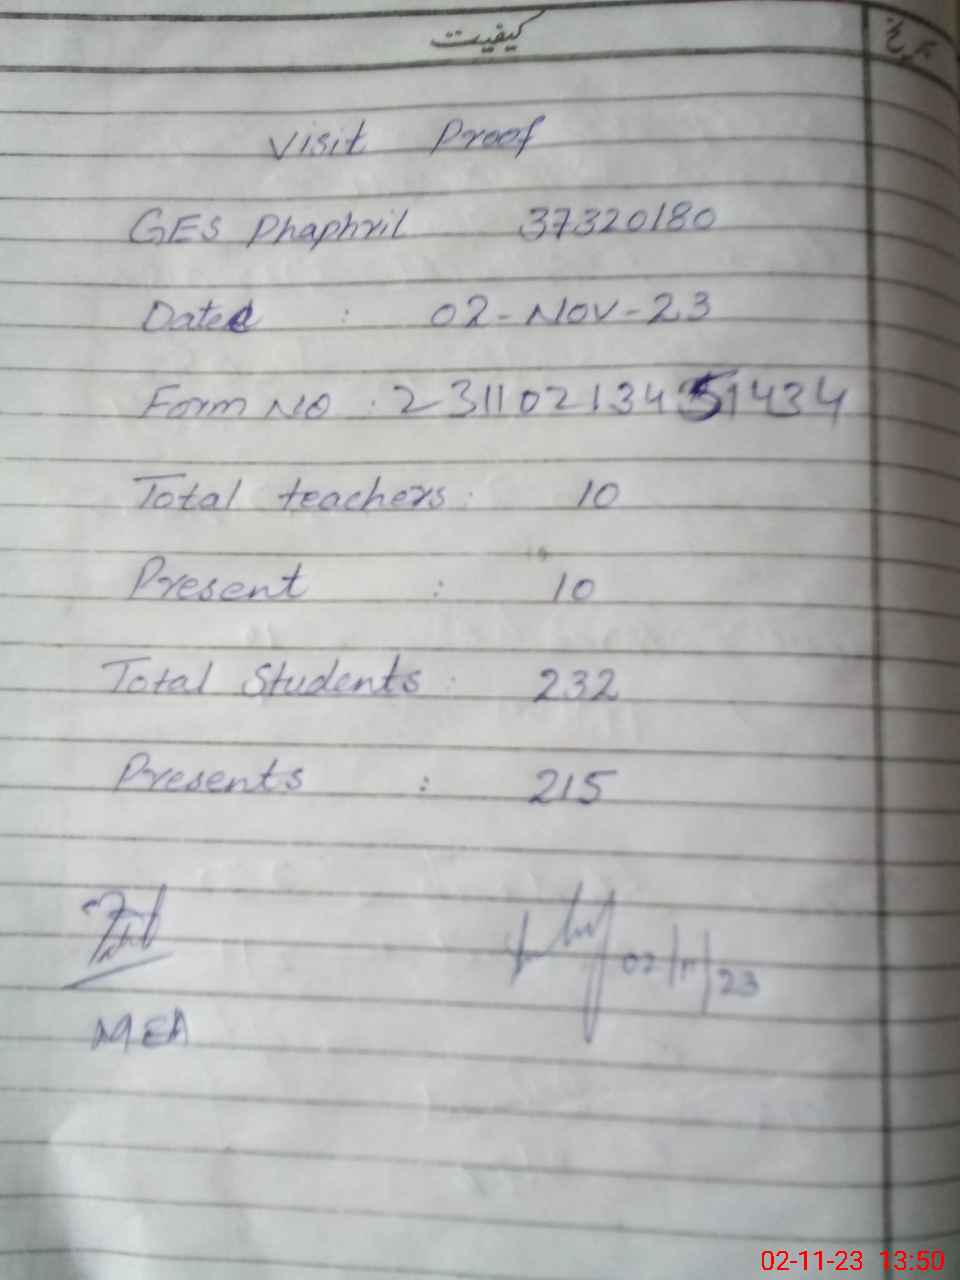 کیفیت تاریخ
Visit Proof
GES Phaphril 37320180
Dated : 02-Nov-23
Form No : 23110213451434
Total teachers : 10
Present : 10
Total Students : 232
Presents : 215
02/11/23
MEA
02-11-23 13:50